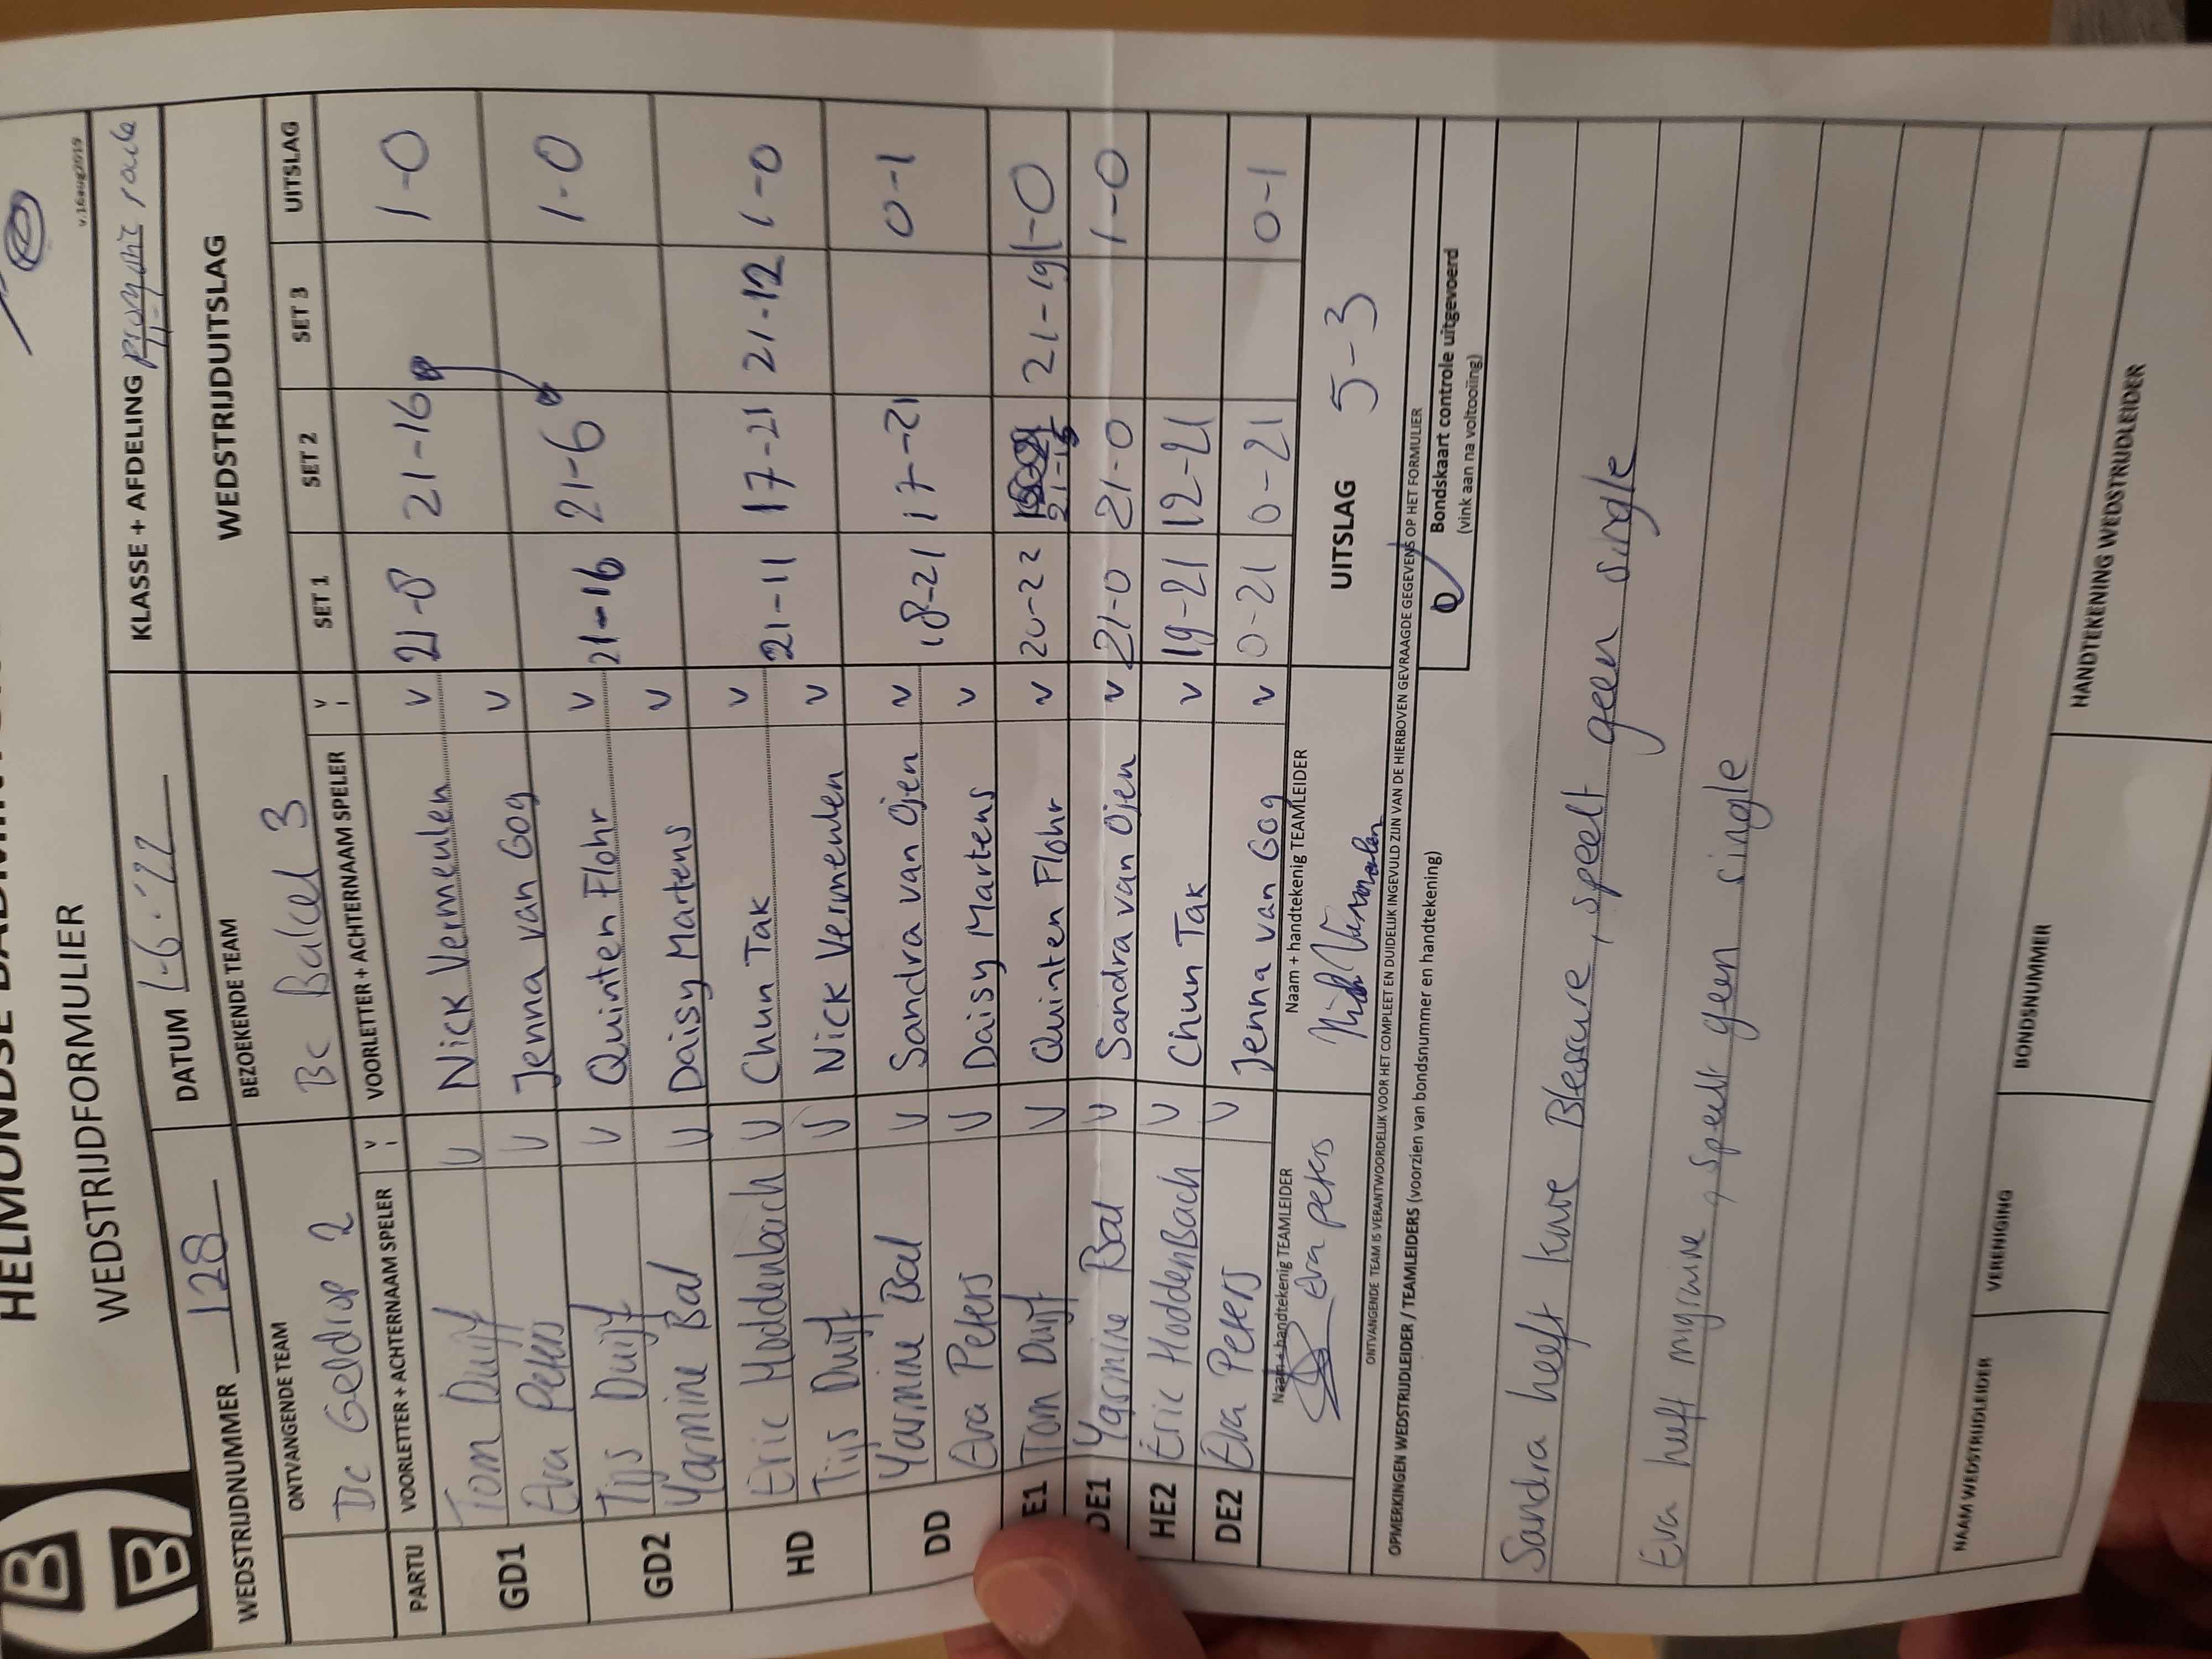 WEDSTRIJDFORMULIER
v.16aug2019
WEDSTRIJDNUMMER 128 DATUM 1-6-'22 KLASSE + AFDELING
ONTVANGENDE TEAM BEZOEKENDE TEAM WEDSTRIJDUITSLAG
BC Geldrop 2 Bc Balcel 3
PARTIJ VOORLETTER + ACHTERNAAM SPELER V VOORLETTER + ACHTERNAAM SPELER V SET 1 SET 2 SET 3 UITSLAG
GD1 Tom Duijf V Nick Vermeulen V 21-8 21-16 1-0
Eva Peters V Jenna van Gog V
GD2 Tijs Duijf V Quinten Flohr V 21-16 21-6 1-0
Yasmine Bal V Daisy Martens V
HD Eric Hoddenbach V Chun Tak V 21-11 17-21 21-12 1-0
Tijs Duijf V Nick Vermeulen V
DD Yasmine Bal V Sandra van Ojen V 18-21 17-21 0-1
Eva Peters V Daisy Martens V
E1 Tom Duijf V Quinten Flohr V 20-22 21-19 1-0
DE1 Yasmine Bal V Sandra van Ojen V 21-0 21-0 1-0
HE2 Eric HoddenBach V Chun Tak V 19-21 12-21
DE2 Eva Peters V Jenna van Gog V 0-21 0-21 0-1
Naam + handtekenig TEAMLEIDER Naam + handtekenig TEAMLEIDER UITSLAG 5-3
Eva peters
ONTVANGENDE TEAM IS VERANTWOORDELIJK VOOR HET COMPLEET EN DUIDELIJK INGEVULD ZIJN VAN DE HIERBOVEN GEVRAAGDE GEGEVENS OP HET FORMULIER
OPMERKINGEN WEDSTRIJDLEIDER / TEAMLEIDERS (voorzien van bondsnummer en handtekening) Bondskaart controle uitgevoerd
(vink aan na voltooiing)
Sandra heeft knie Blessure, speelt geen single
Eva heeft migraine, speelt geen single
NAAM WEDSTRIJDLEIDER VERENIGING BONDSNUMMER HANDTEKENING WEDSTRIJDLEIDER